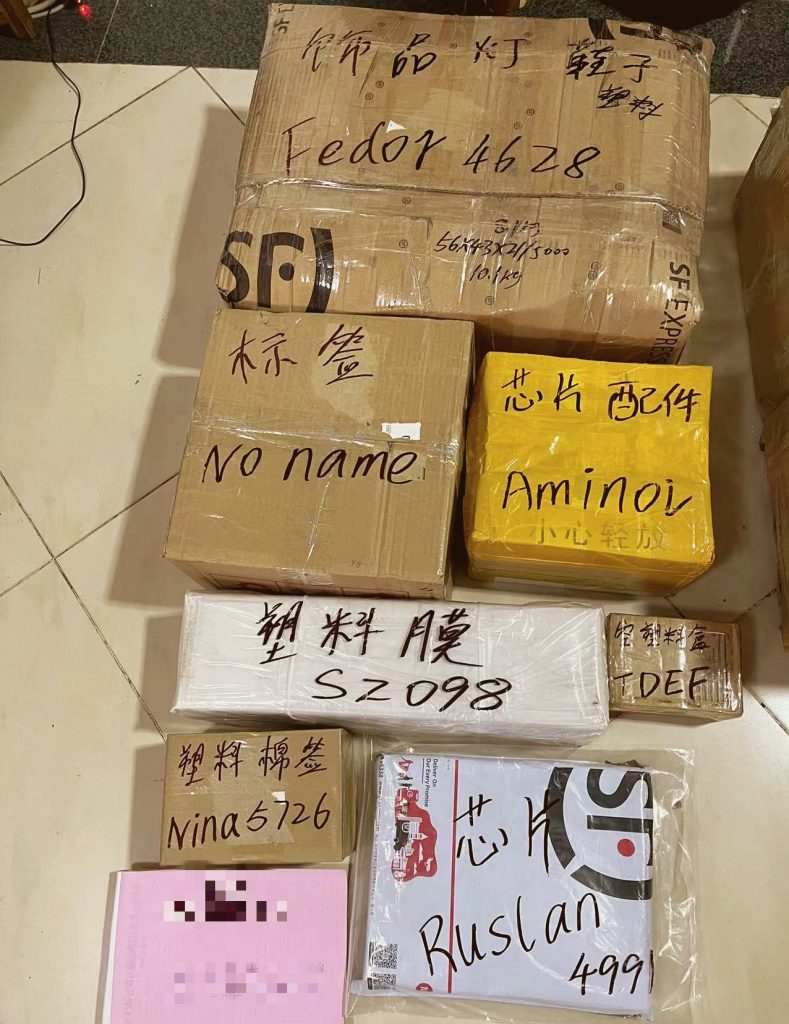 SF E
饰品 灯 鞋子
Fedor 4628
56X43X21/5000
10.1kg
SF
SF EXPRESS
标签
No name
芯片 配件
Aminov
小心轻放
塑料膜
SZ098
空塑料盒
TDEF
塑料棉签
Nina5726
Deliver On
Our Every Promise
SF
芯片
Ruslan
4991